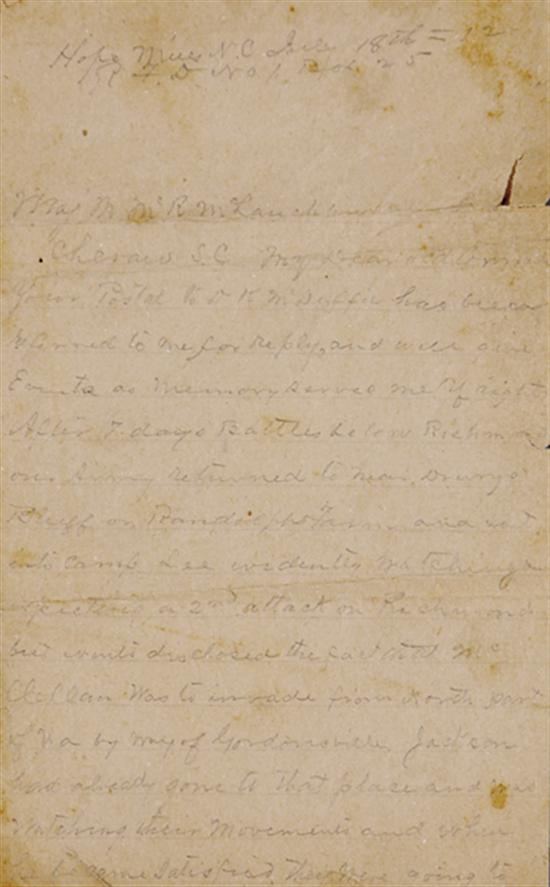 Hope Mills N.C. 18th = 12
R F D No 1, Box 25
Maj M Mc R McLauchlin
Cheraw S.C. My Dear old
Your Postal to D K McDuffie has been
referred to me for reply, and will give
Events as Memory serves me if right
After 7 days Battles below Richmond
our Army returned to near Drurys
Bluff on Randolphs Farm and went
into Camp Lee evidently Watching &
expecting a 2nd attack on Richmond
but events disclosed the fact that Mc
Clellan Was to invade from North part
of Va by way of Gordonsville, Jackson
had already gone to that place and was
Watching their Movements and when
he became satisfied they were going to